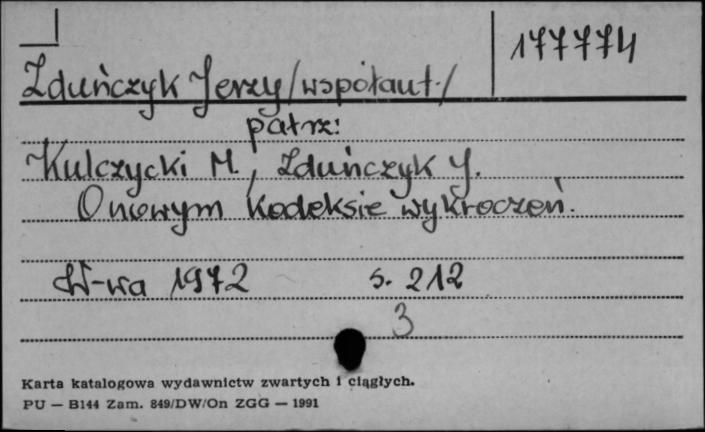 177774
Zduńczyk Jerzy /współaut./
patrz:
Kulczycki M., Zduńczyk J.
O nowym Kodeksie wykroczeń.
W-wa 1972 s. 212
3
Karta katalogowa wydawnictw zwartych i ciągłych.
PU — B144 Zam. 849/DW/On ZGG — 1991